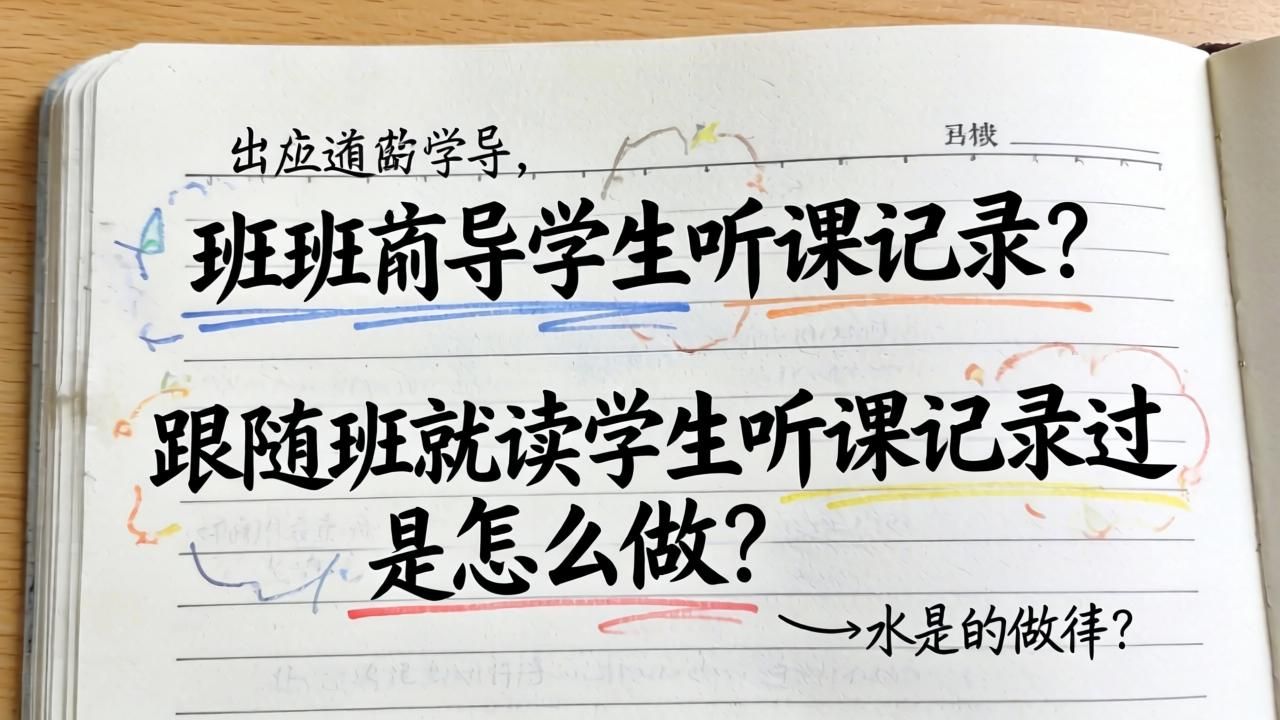 出应道的学导，
班班前导学生听课记录？
跟随班就读学生听课记录过
是怎么做？
水是的做律？